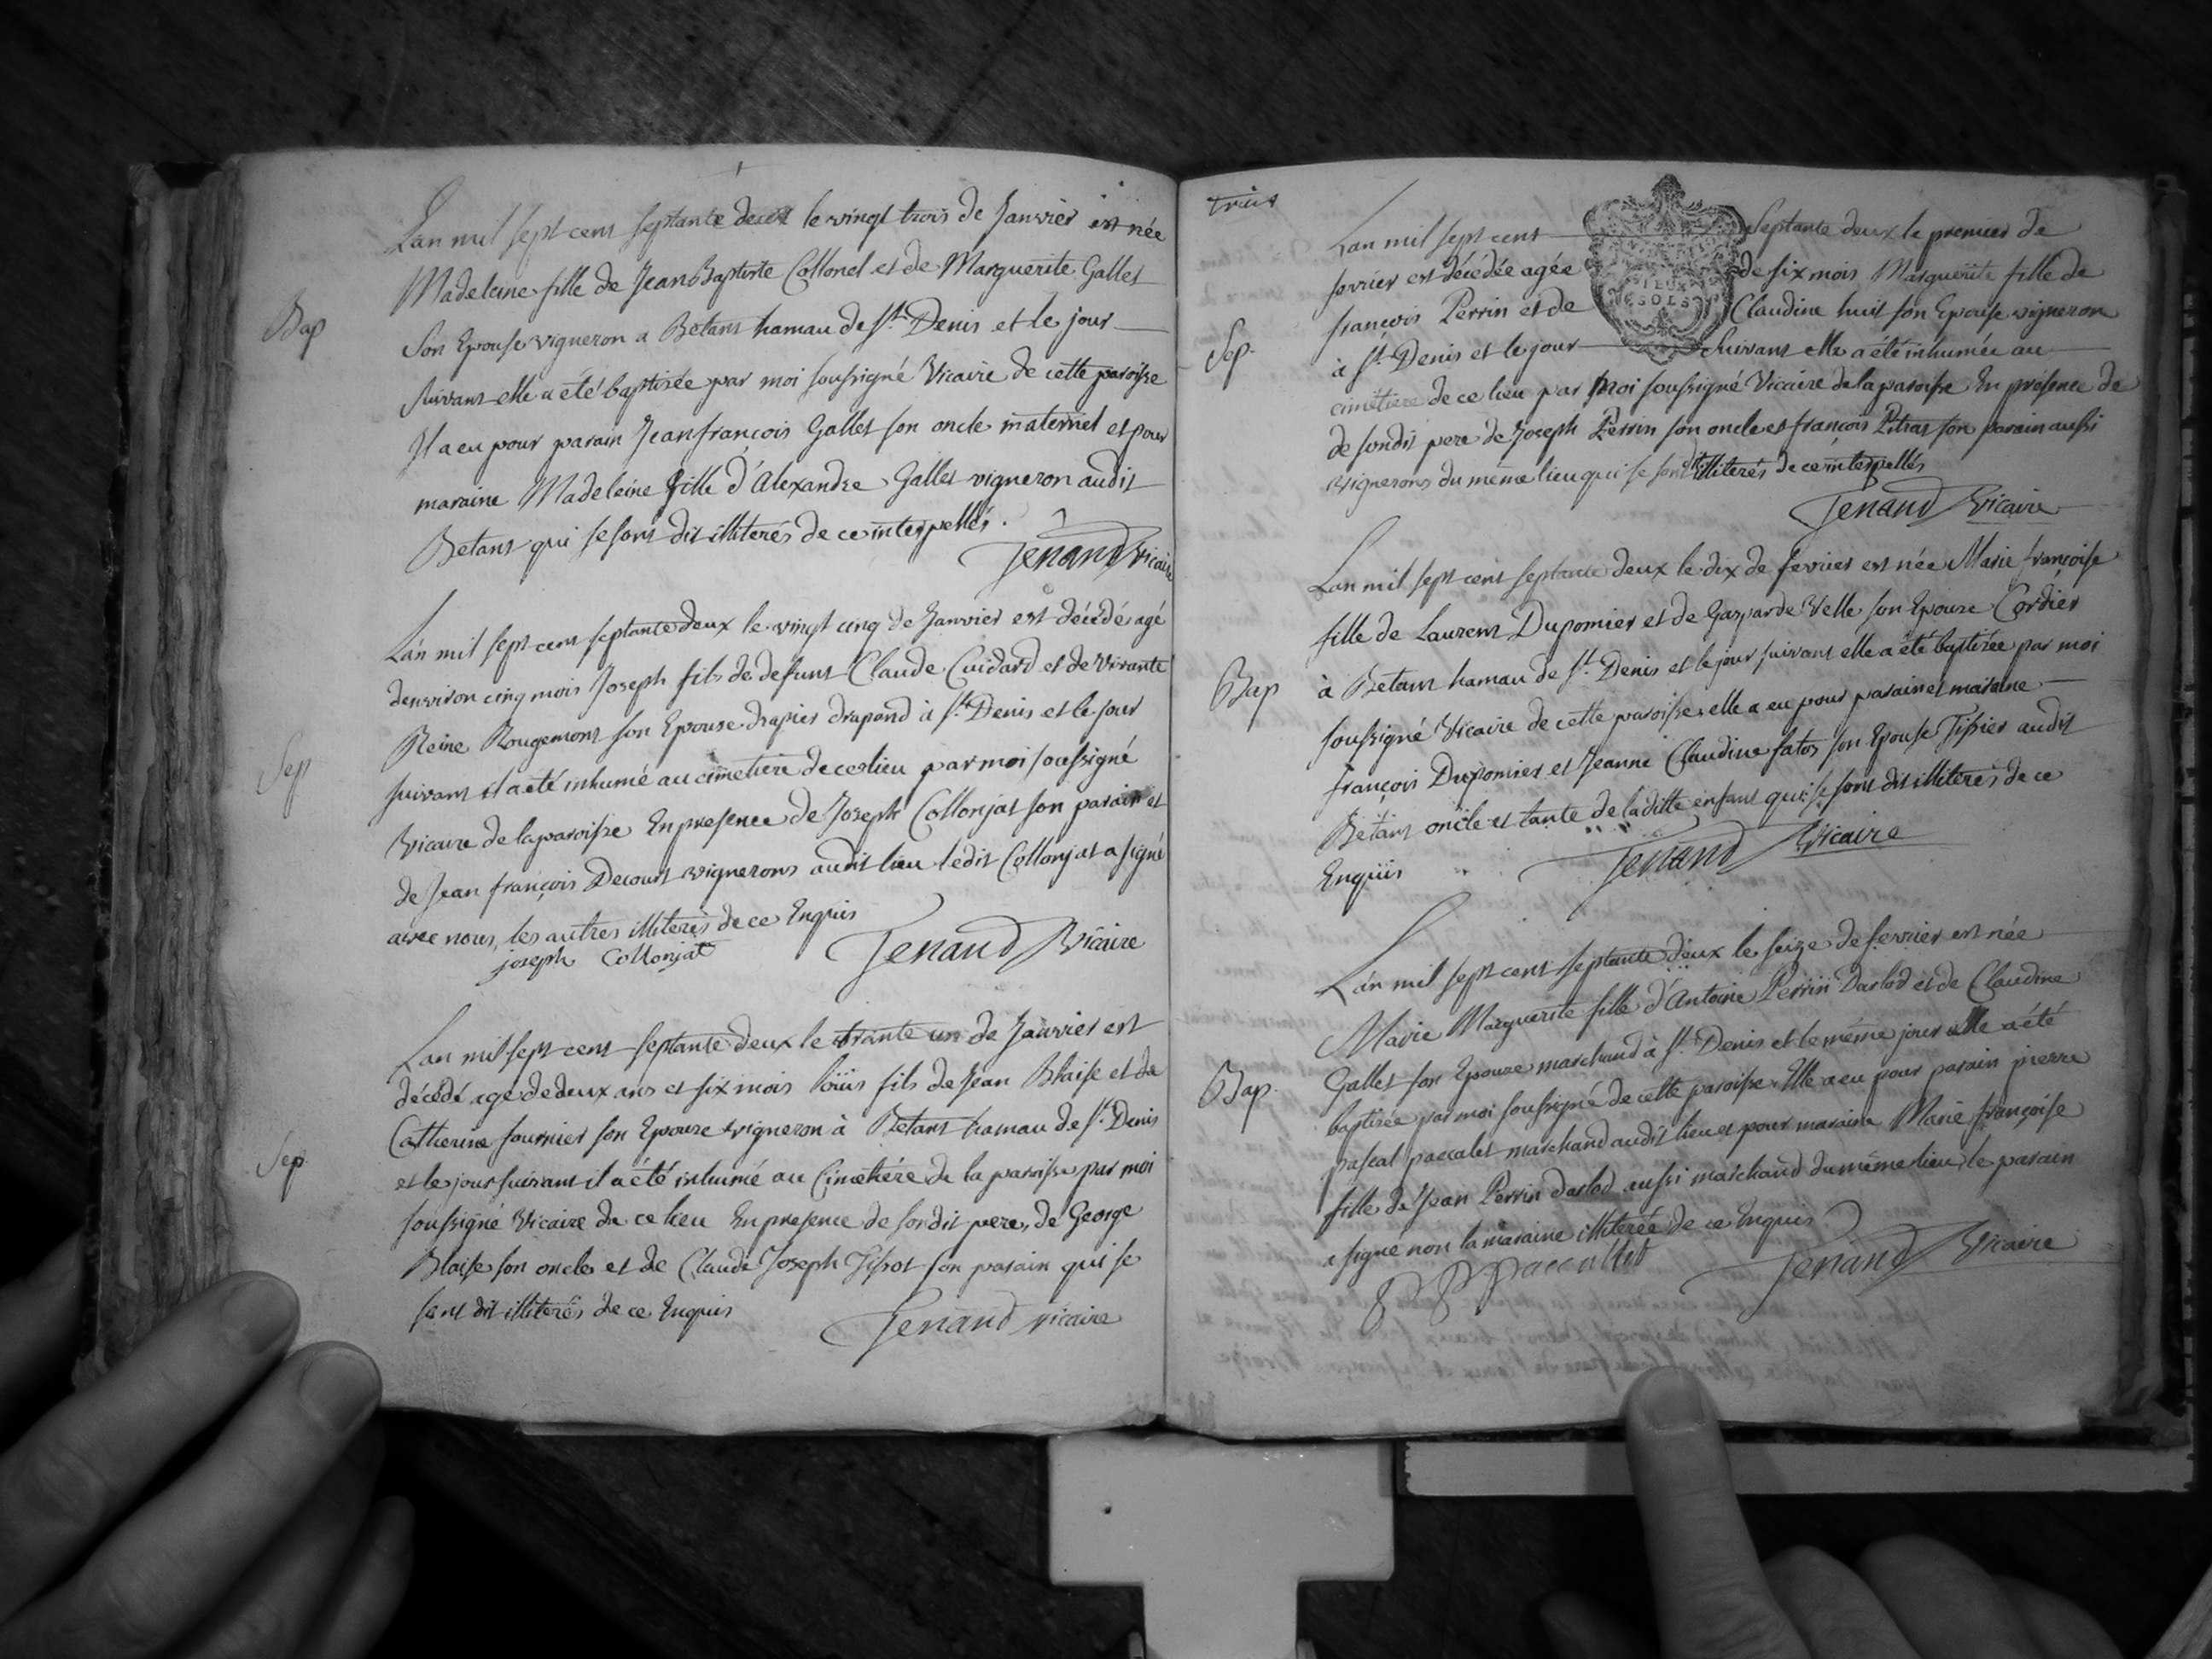 Lan mil sept cent septante deux le vingt trois de Janvier est née
Madeleine fille de Jean Baptiste Collonel et de Marguerite Gallet
Bap
son Epouse vigneron a Betant hamau de St. Denis et le jour
suivant elle a été baptisée par moi soussigné Vicaire de cette paroisse
Il a eu pour parain Jean françois Gallet son oncle maternel et pour
maraine Madeleine fille d'Alexandre Gallet vigneron audit
Betant qui se sont dit illiterés de ce interpellés.
Tenand Vicaire
Lan mil sept cent septante deux le vingt cinq de Janvier est décédé agé
denviron cinq mois Joseph fils de defunt Claude Cuidard et de vivante
Reine Rougemont son Epouse drapier drapand à St. Denis et le jour
Sep
suivant il a été inhumé au cimetiere de ce lieu par moi soussigné
Vicaire de la paroisse En presence de Joseph Collonjat son parain et
de Jean françois Decourt vignerons audit lieu ledit Collonjat a signé
avec nous, les autres illiterés de ce Enquis
joseph Collonjat Tenand Vicaire
Lan mil sept cent septante deux le trante un de Janvier est
décédé agé de deux ans et six mois loüis fils de Jean Blaise et de
Catherine fournier son Epouze vigneron à Betant hamau de St. Denis
Sep
et le jour suivant il a été inhumé au Cimetiére de la paroisse par moi
soussigné Vicaire de ce lieu En presence de sondit pere, de George
Blaise son oncle et de Claude Joseph Tissot son parain qui se
sont dit illiterés de ce Enquis
Tenand vicaire
trois
Lan mil sept cent septante deux le premier de
fevrier est décédée agée de six mois Marguerite fille de
SIEUX
SOLS
françois Perrin et de Claudine huit son Epouse vigneron
Sep.
à St. Denis et le jour suivant elle a été inhumée au
cimetiere de ce lieu par moi soussigné Vicaire de la paroisse En présence de
de sondit pere de Joseph Perrin son oncle et françois Pitrat son parain aussi
vignerons du même lieu qui se sont dit illiterés de ce interpellés
Tenand Vicaire
Lan mil sept cent septante deux le dix de fevrier est née Marie françoise
fille de Laurent Dupomier et de Gasparde Velle son Epouze Cordier
Bap
à Betant hamau de St. Denis et le jour suivant elle a été baptisée par moi
soussigné Vicaire de cette paroisse, elle a eu pour parain et maraine
françois Dupomier et Jeanne Claudine fatot son Epouse Tissier audit
Betant oncle et tante de laditte enfant qui se sont dit illiterés de ce
Enquis
Tenand Vicaire
Lan mil sept cent septante deux le seize de fevrier est née
Marie Marguerite fille d'Antoine Perrin Darlod et de Claudine
Gallet son Epouze marchand à St. Denis et le même jour elle a été
Bap.
baptisée par moi soussigné de cette paroisse. Elle a eu pour parain pierre
pascal paccalet marchand audit lieu et pour maraine Marie françoise
fille de Jean Perrin darlod aussi marchand du même lieu, le parain
a signé non la maraine illiterée de ce Enquis
P P Paccallet Tenand Vicaire